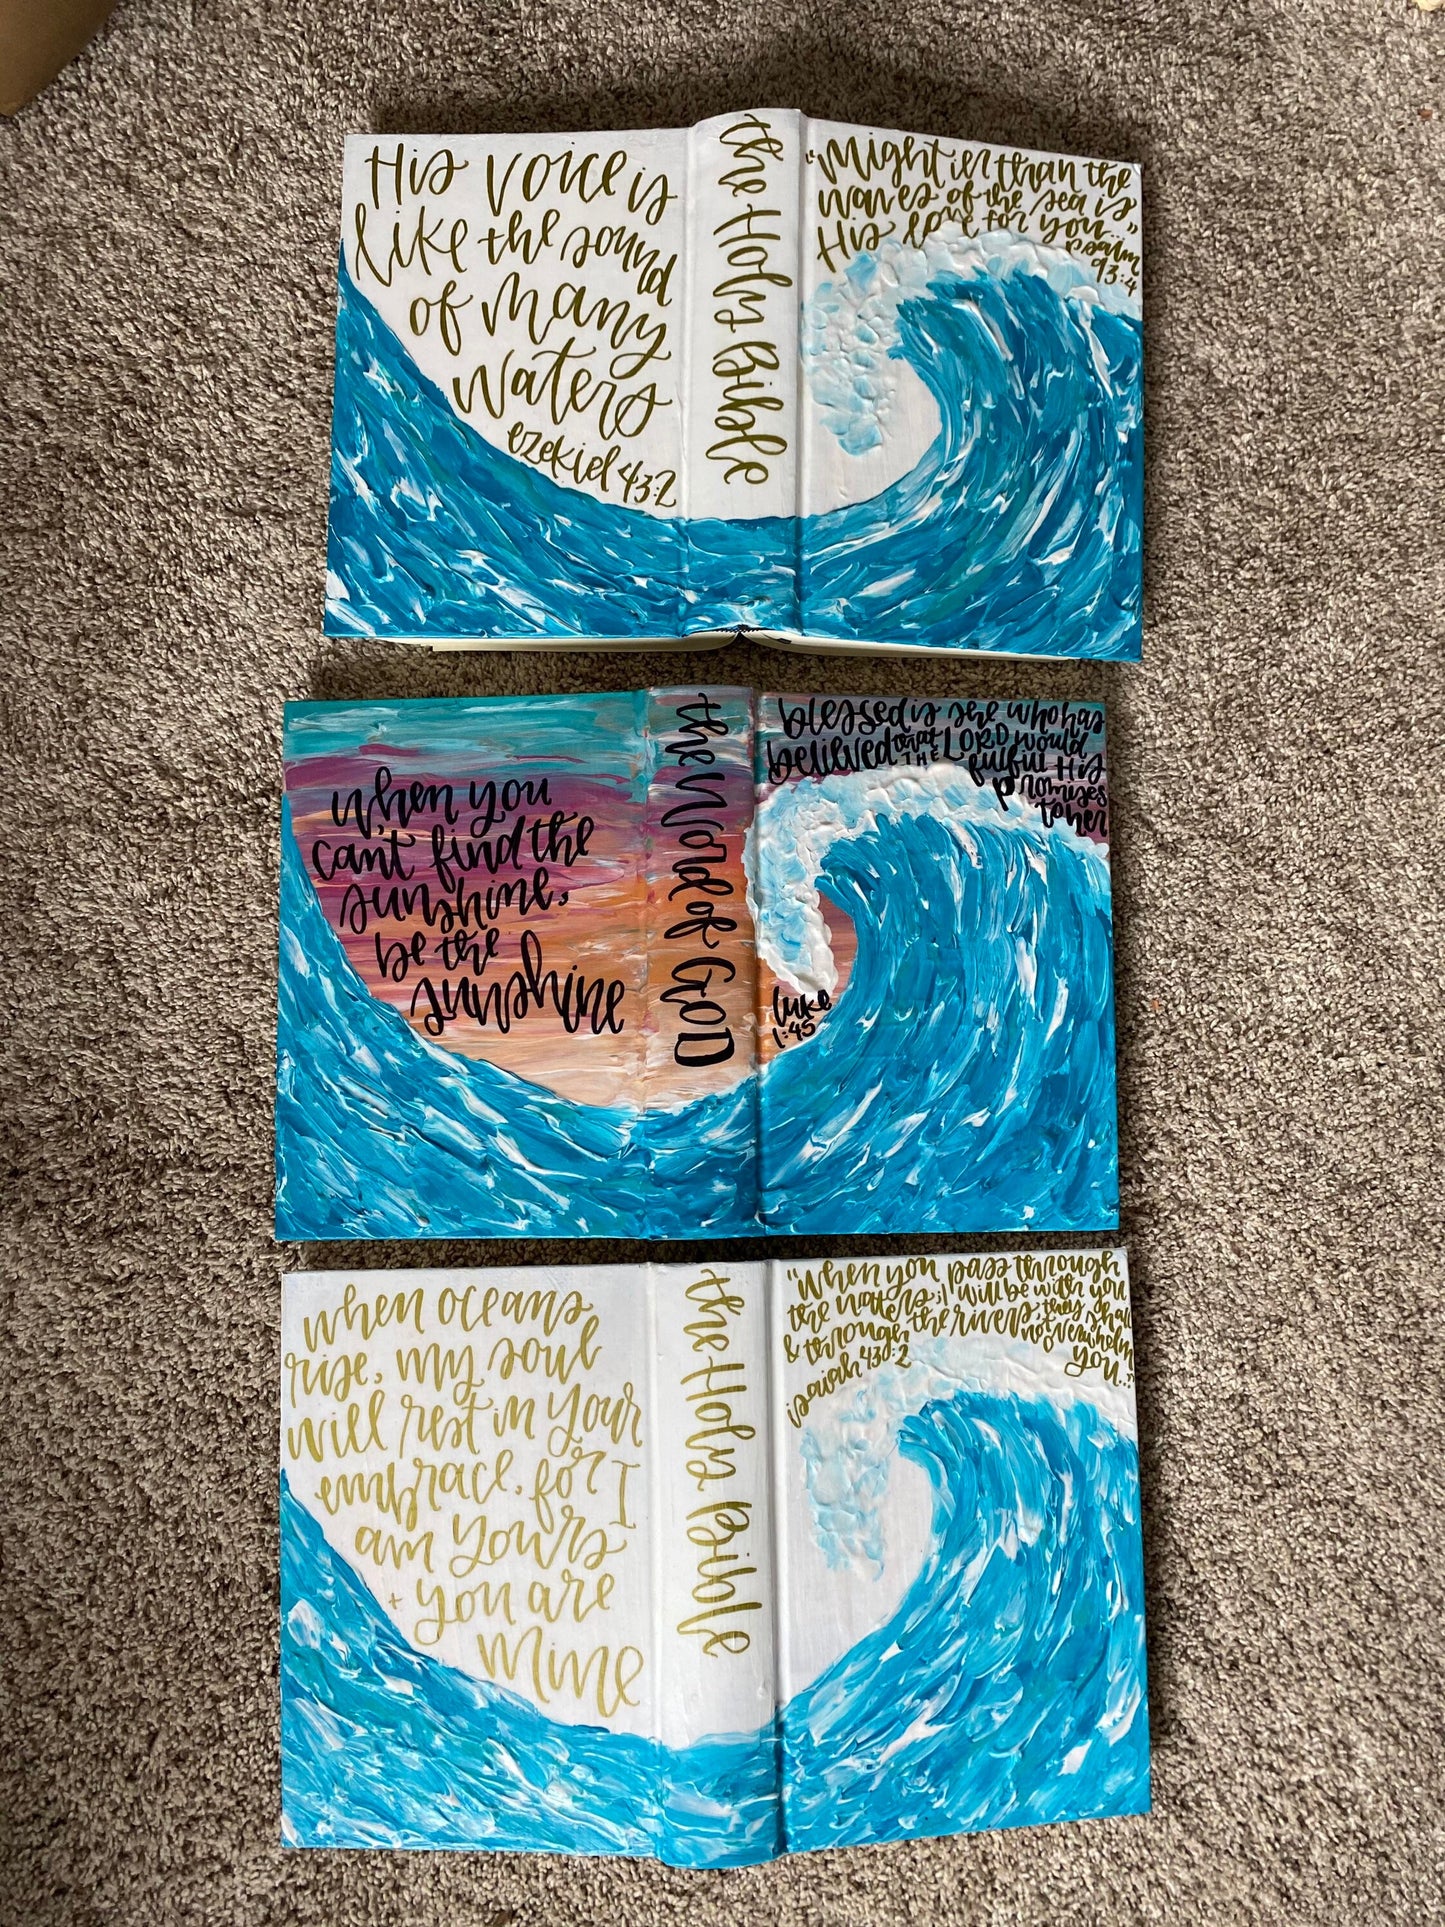 His voice is
like the sound
of many
waters
ezekiel 43:2
the Holy Bible
"Mightier than the
waves of the sea is
His love for you..."
psalm
93:4
when you
can't find the
sunshine,
be the
sunshine
the Word of GOD
blessed is she who has
believed that THE LORD would
fulful His
promises
to her
luke
1:45
when oceans
rise, my soul
will rest in your
embrace, for I
am yours
+ you are
mine
the Holy Bible
"When you pass through
the waters, I will be with you
& through the rivers, they shall
not overwhelm
you..."
isaiah 43:2